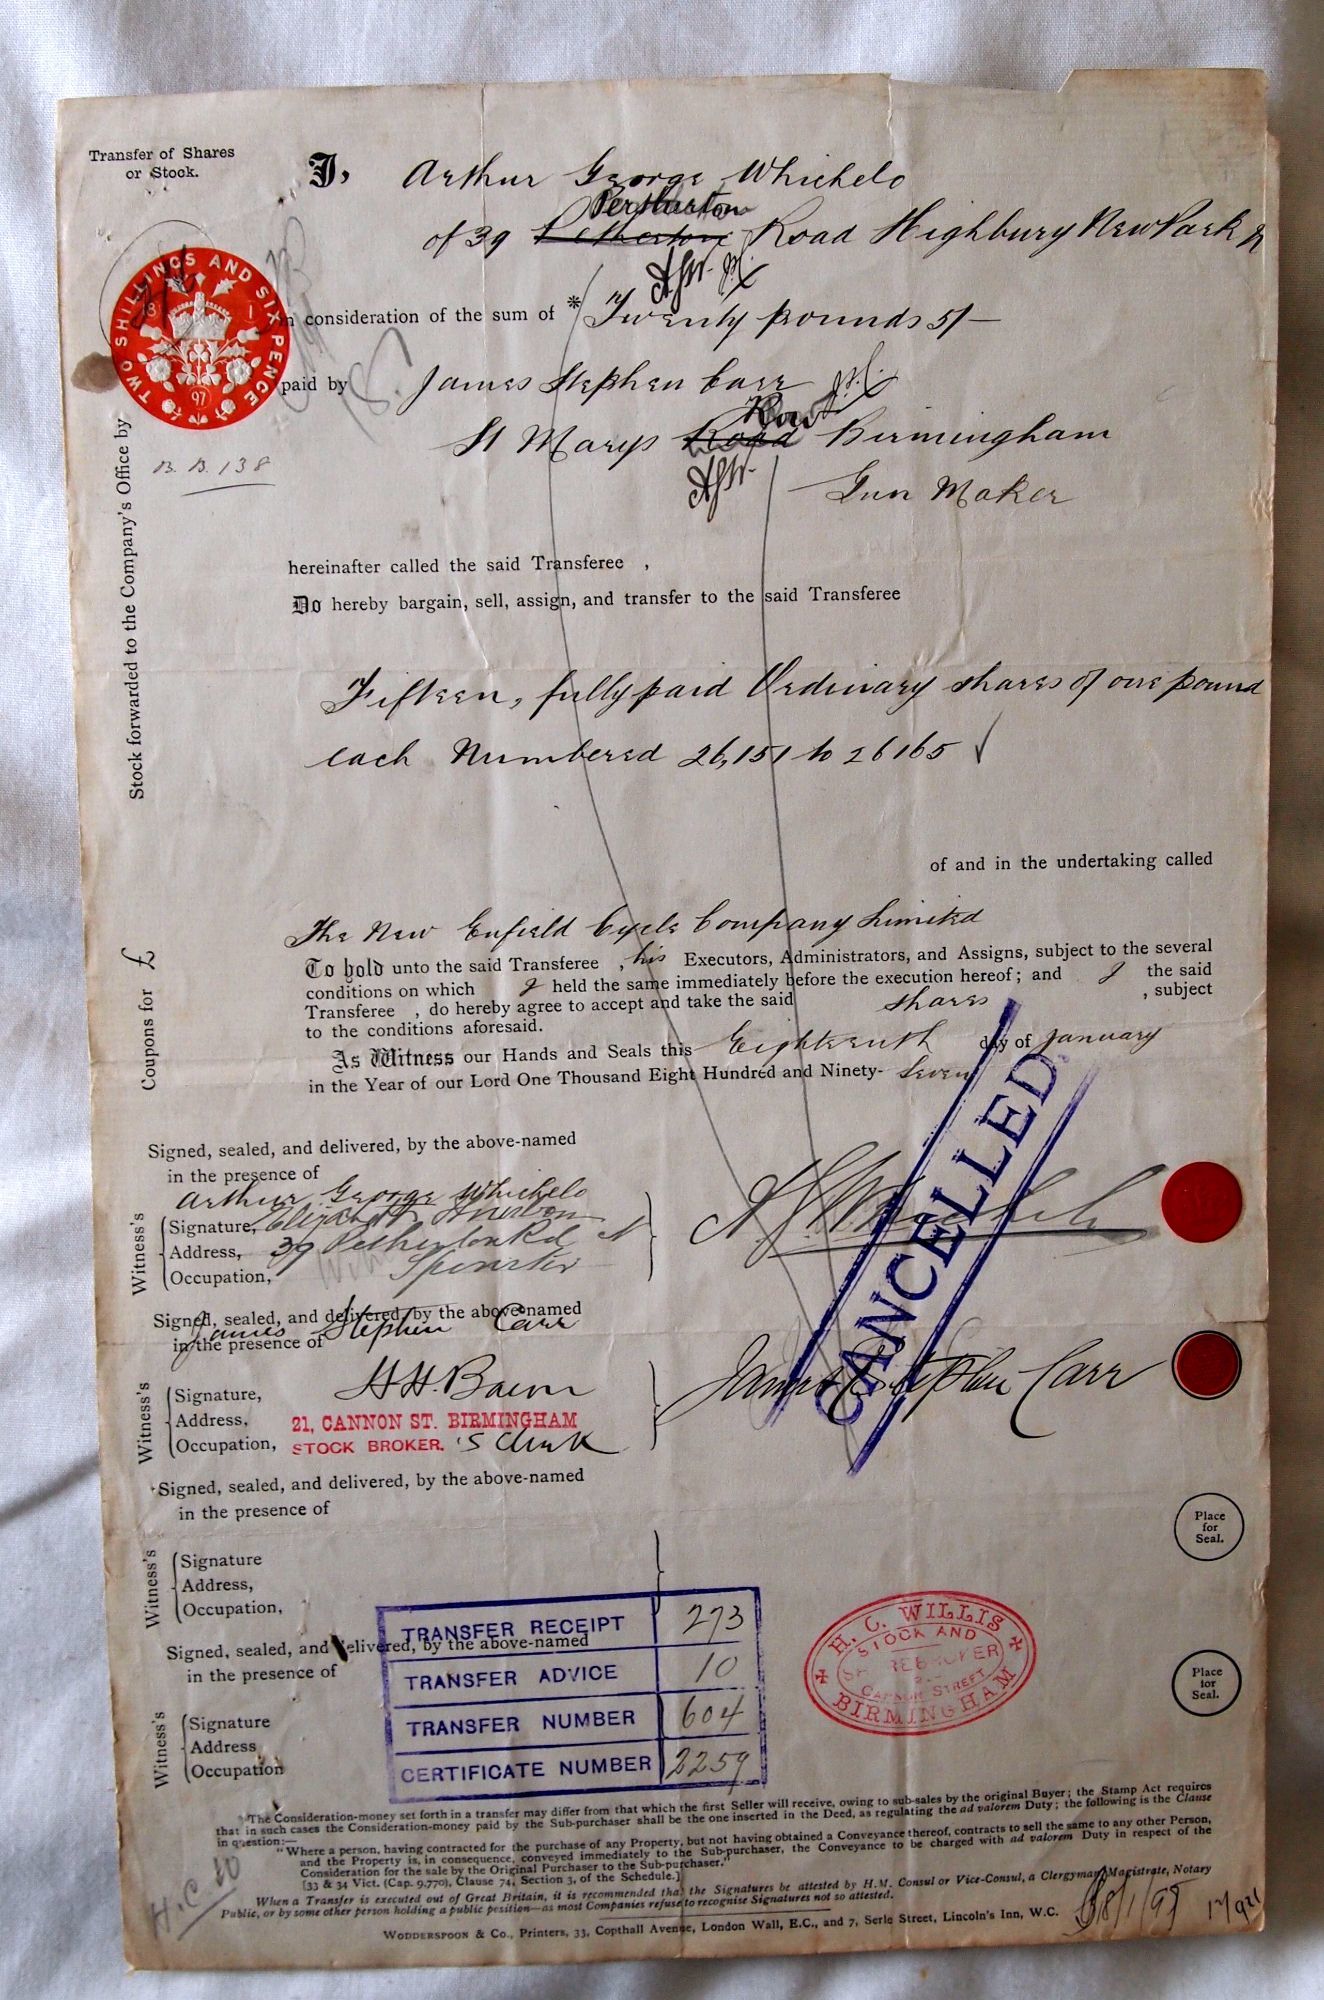 Transfer of Shares
or Stock.
I, Arthur George Whichelo
of 39 Petherton Road Highbury New Park N
TWO SHILLINGS AND SIX PENCE
97
In consideration of the sum of * Twenty pounds 5/-
paid by James Stephen Carr
Row
St Marys Road Birmingham
AGW
Gun Maker
B. B. 138
Stock forwarded to the Company's Office by
Coupons for £
hereinafter called the said Transferee ,
Do hereby bargain, sell, assign, and transfer to the said Transferee
Fifteen, fully paid Ordinary shares of one pound
each Numbered 26,151 to 26165
of and in the undertaking called
The New Enfield Cycle Company Limited
To hold unto the said Transferee , his Executors, Administrators, and Assigns, subject to the several
conditions on which I held the same immediately before the execution hereof; and I the said
Transferee , do hereby agree to accept and take the said shares , subject
to the conditions aforesaid.
As Witness our Hands and Seals this Eighteenth day of January
in the Year of our Lord One Thousand Eight Hundred and Ninety- Seven
CANCELLED
Signed, sealed, and delivered, by the above-named
in the presence of
Arthur George Whichelo
Witness's
Signature,
Address, 39 Petherton Rd N
Occupation, Spinster
Signed, sealed, and delivered, by the above-named
James Stephen Carr
in the presence of
Witness's
Signature, H H. Bacon
Address, 21, CANNON ST. BIRMINGHAM
Occupation, STOCK BROKER. 'S Clerk
James Stephen Carr
Signed, sealed, and delivered, by the above-named
in the presence of
Place
for
Seal.
Witness's
Signature
Address,
Occupation,
TRANSFER RECEIPT 273
TRANSFER ADVICE 10
TRANSFER NUMBER 604
CERTIFICATE NUMBER 2259
H. C. WILLIS
STOCK AND
SHAREBROKER
CANNON STREET
BIRMINGHAM
Signed, sealed, and delivered, by the above-named
in the presence of
Place
for
Seal.
Witness's
Signature
Address
Occupation
*The Consideration-money set forth in a transfer may differ from that which the first Seller will receive, owing to sub-sales by the original Buyer; the Stamp Act requires
that in such cases the Consideration-money paid by the Sub-purchaser shall be the one inserted in the Deed, as regulating the ad valorem Duty; the following is the Clause
in question:—
"Where a person, having contracted for the purchase of any Property, but not having obtained a Conveyance thereof, contracts to sell the same to any other Person,
and the Property is, in consequence, conveyed immediately to the Sub-purchaser, the Conveyance to be charged with ad valorem Duty in respect of the
Consideration for the sale by the Original Purchaser to the Sub-purchaser."
[33 & 34 Vict. (Cap. 9,770), Clause 74, Section 3, of the Schedule.]
When a Transfer is executed out of Great Britain, it is recommended that the Signatures be attested by H.M. Consul or Vice-Consul, a Clergyman, Magistrate, Notary
Public, or by some other person holding a public position—as most Companies refuse to recognise Signatures not so attested.
WODDERSPOON & Co., Printers, 33, Copthall Avenue, London Wall, E.C., and 7, Serle Street, Lincoln's Inn, W.C.
H.C.W